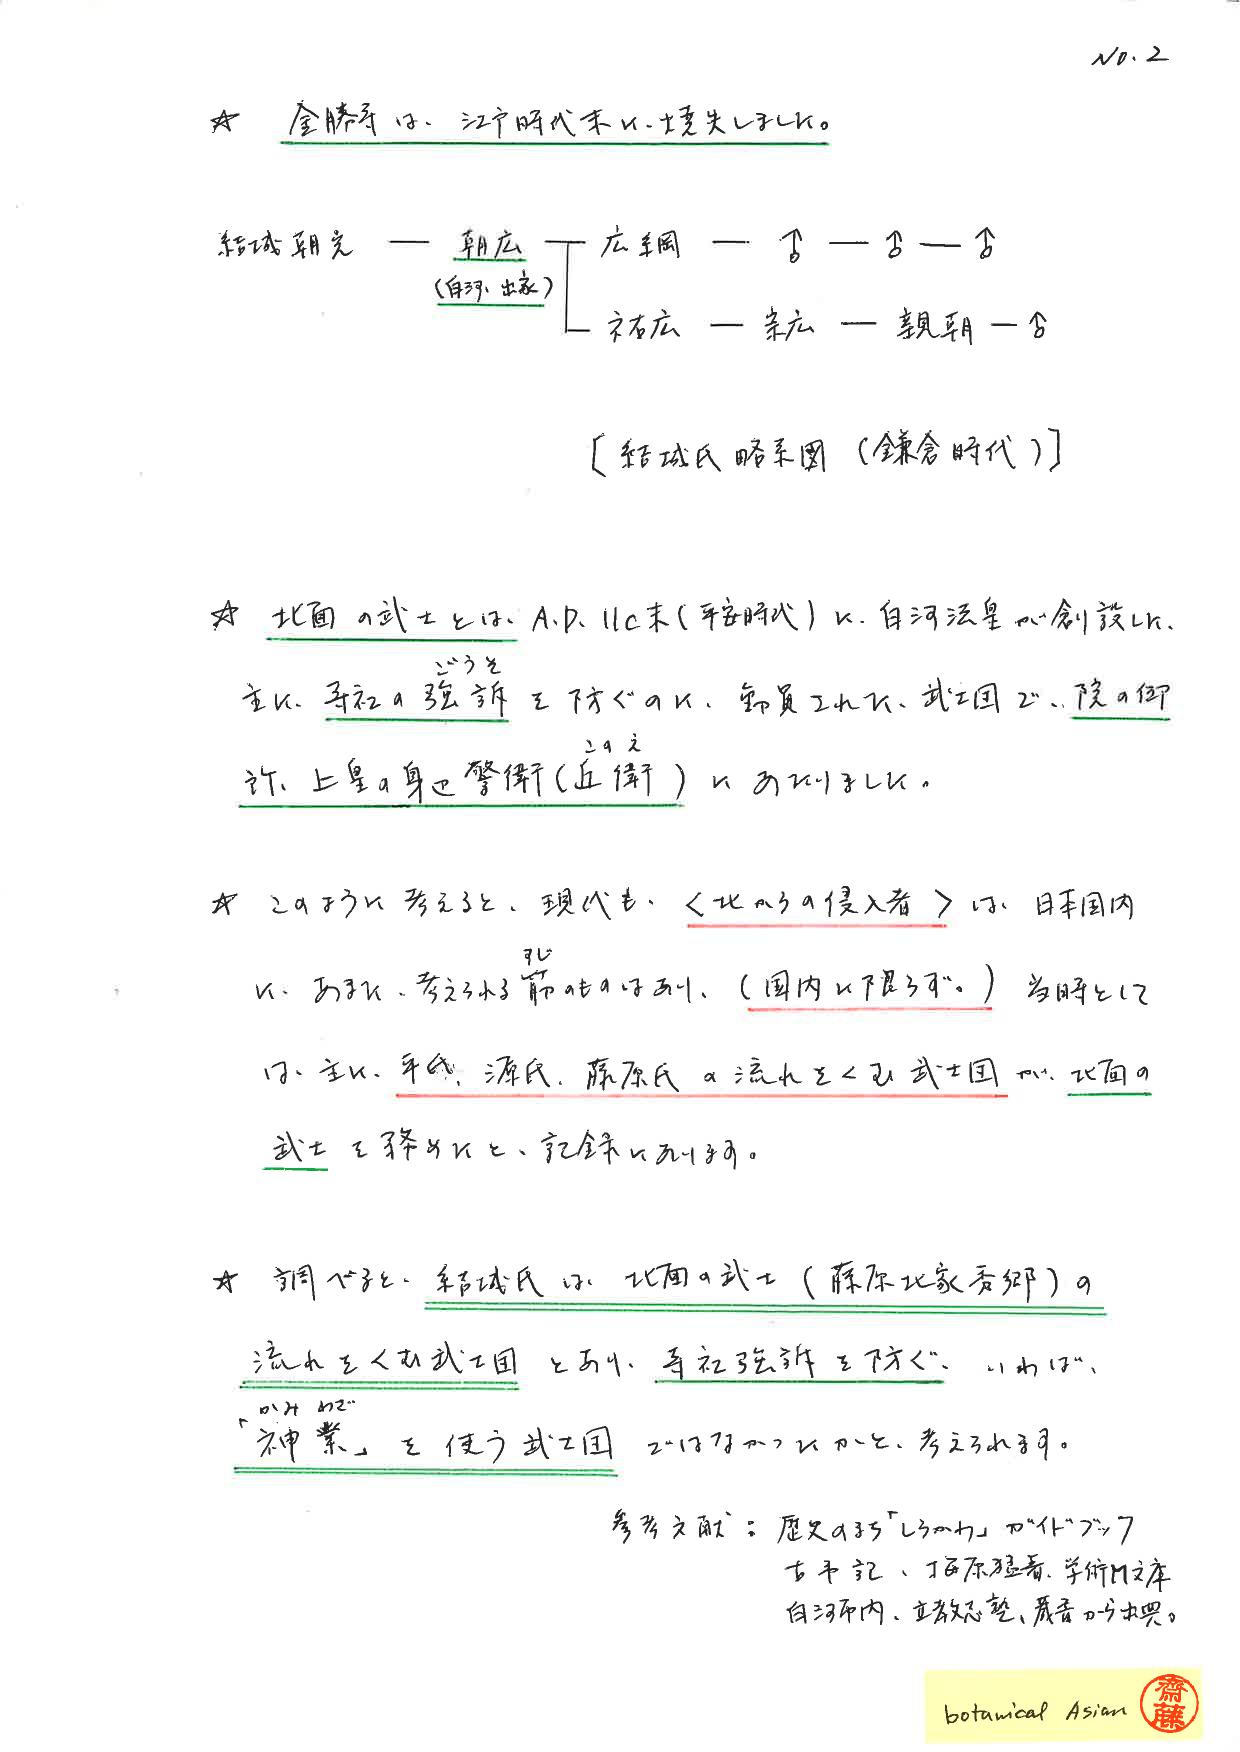 No. 2
☆ 金勝寺は、江戸時代末に、焼失しました。
結城朝光 ― 朝広 ― 広綱 ― ♂ ― ♂ ― ♂
(白河、出家)
祐広 ― 宗広 ― 親朝 ― ♂
[結城氏略系図(鎌倉時代)]
☆ 北面の武士とは、A.D.11c末(平安時代)に、白河法皇が創設した、
ごうそ
主に、寺社の強訴を防ぐのに、動員された、武士団で、院の御
このえ
所、上皇の身辺警衛(丘衛)にあたりました。
☆ このように考えると、現代も、<北からの侵入者>は、日本国内
すじ
に、あまた、考えられる筋のものはあり、(国内に限らず。)当時として
は、主に、平氏、源氏、藤原氏の流れをくむ武士団が、北面の
武士を務めたと、記録にあります。
☆ 調べると、結城氏は、北面の武士(藤原北家秀郷)の
流れをくむ武士団とあり、寺社強訴を防ぐ、いわば、
かみわざ
「神業」を使う武士団ではなかったかと、考えられます。
参考文献:歴史のまち「しらかわ」ガイドブック
古事記、梅原猛著、学術M文庫
白河市内、立教志塾、蔵書から出典。
botanical Asian 齋藤